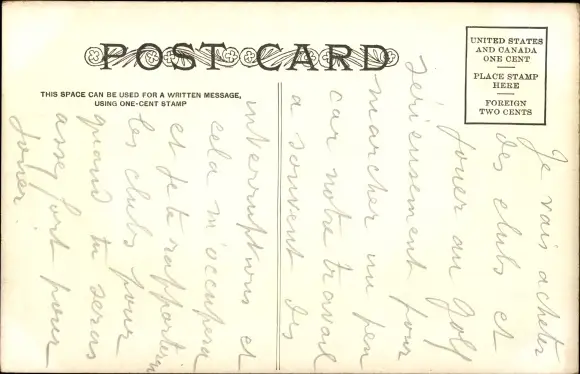 POST CARD
THIS SPACE CAN BE USED FOR A WRITTEN MESSAGE,
USING ONE-CENT STAMP
UNITED STATES
AND CANADA
ONE CENT
PLACE STAMP
HERE
FOREIGN
TWO CENTS
Je vais acheter
des clubs et
jouer au Golf
sérieusement pour
marcher un peu
car notre travail
a souvent des
interruptions et
cela m'occupera
et je te rapporterai
les clubs pour
quand tu seras
assez fort pour
jouer